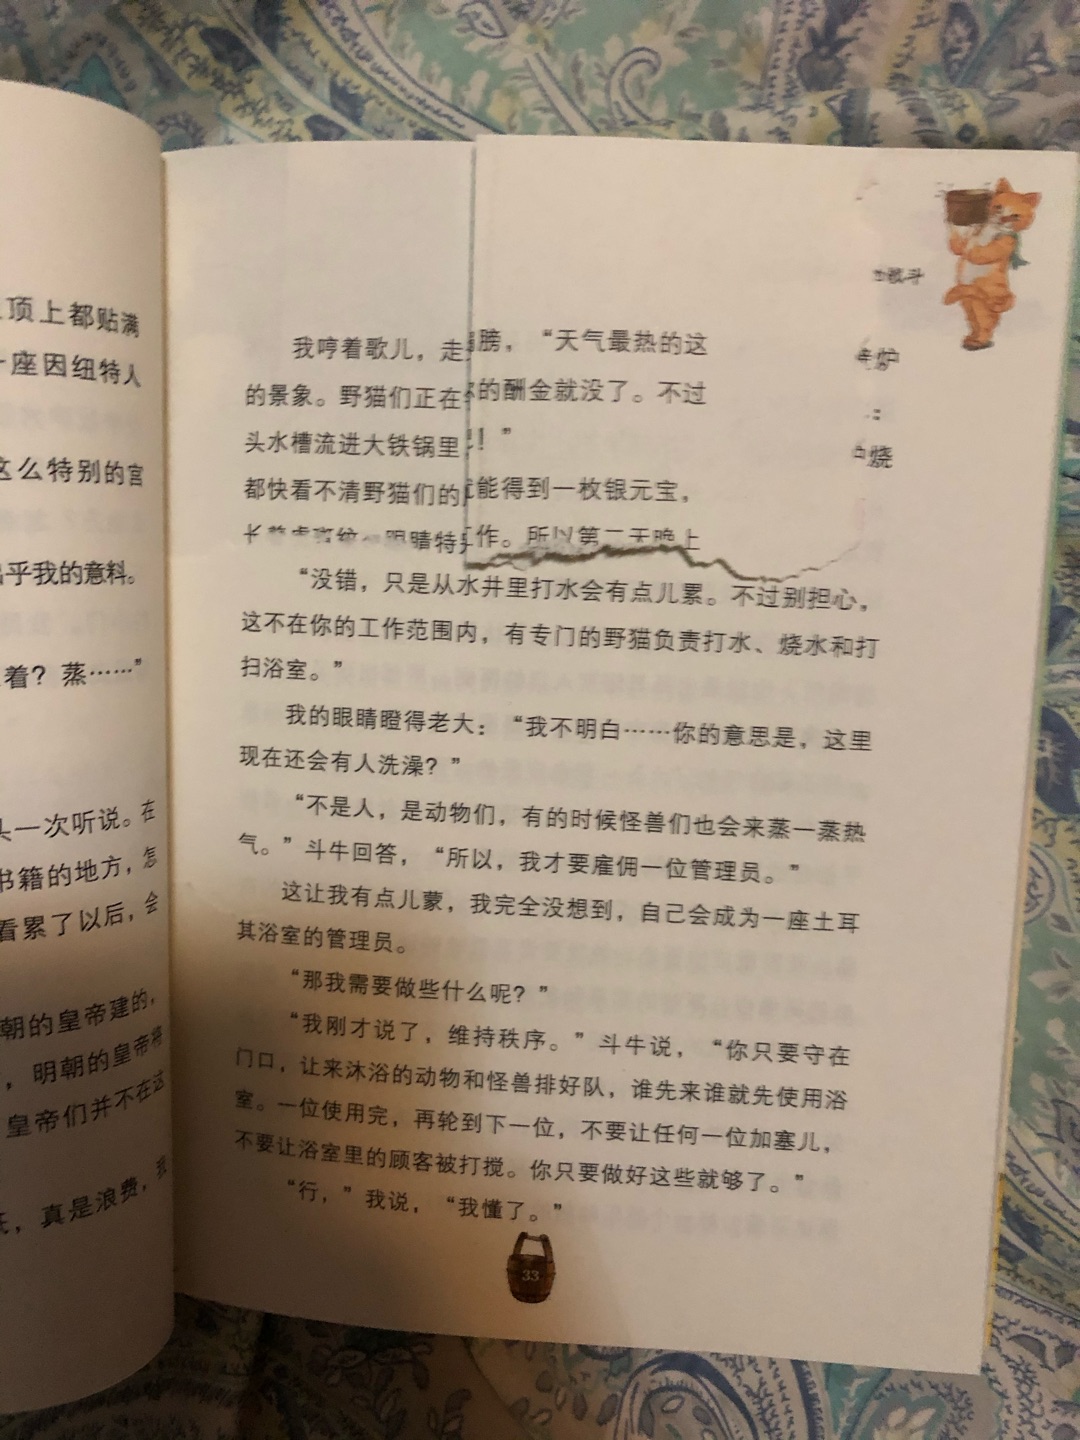 顶上都贴满
座因纽特人
这么特别的宫
出乎我的意料。
着？蒸……”
一次听说。在
书籍的地方，怎
看累了以后，会
朝的皇帝建的，
，明朝的皇帝将
皇帝们并不在这
，真是浪费，我
战斗
我哼着歌儿，走
膀，“天气最热的这
炉
的景象。野猫们正在
的酬金就没了。不过
：
头水槽流进大铁锅里
！”
烧
都快看不清野猫们的
能得到一枚银元宝，
眼睛特
作。所以第二天晚上
“没错，只是从水井里打水会有点儿累。不过别担心，
这不在你的工作范围内，有专门的野猫负责打水、烧水和打
扫浴室。”
我的眼睛瞪得老大：“我不明白……你的意思是，这里
现在还会有人洗澡？”
“不是人，是动物们，有的时候怪兽们也会来蒸一蒸热
气。”斗牛回答，“所以，我才要雇佣一位管理员。”
这让我有点儿蒙，我完全没想到，自己会成为一座土耳
其浴室的管理员。
“那我需要做些什么呢？”
“我刚才说了，维持秩序。”斗牛说，“你只要守在
门口，让来沐浴的动物和怪兽排好队，谁先来谁就先使用浴
室。一位使用完，再轮到下一位，不要让任何一位加塞儿，
不要让浴室里的顾客被打搅。你只要做好这些就够了。”
“行，”我说，“我懂了。”
33